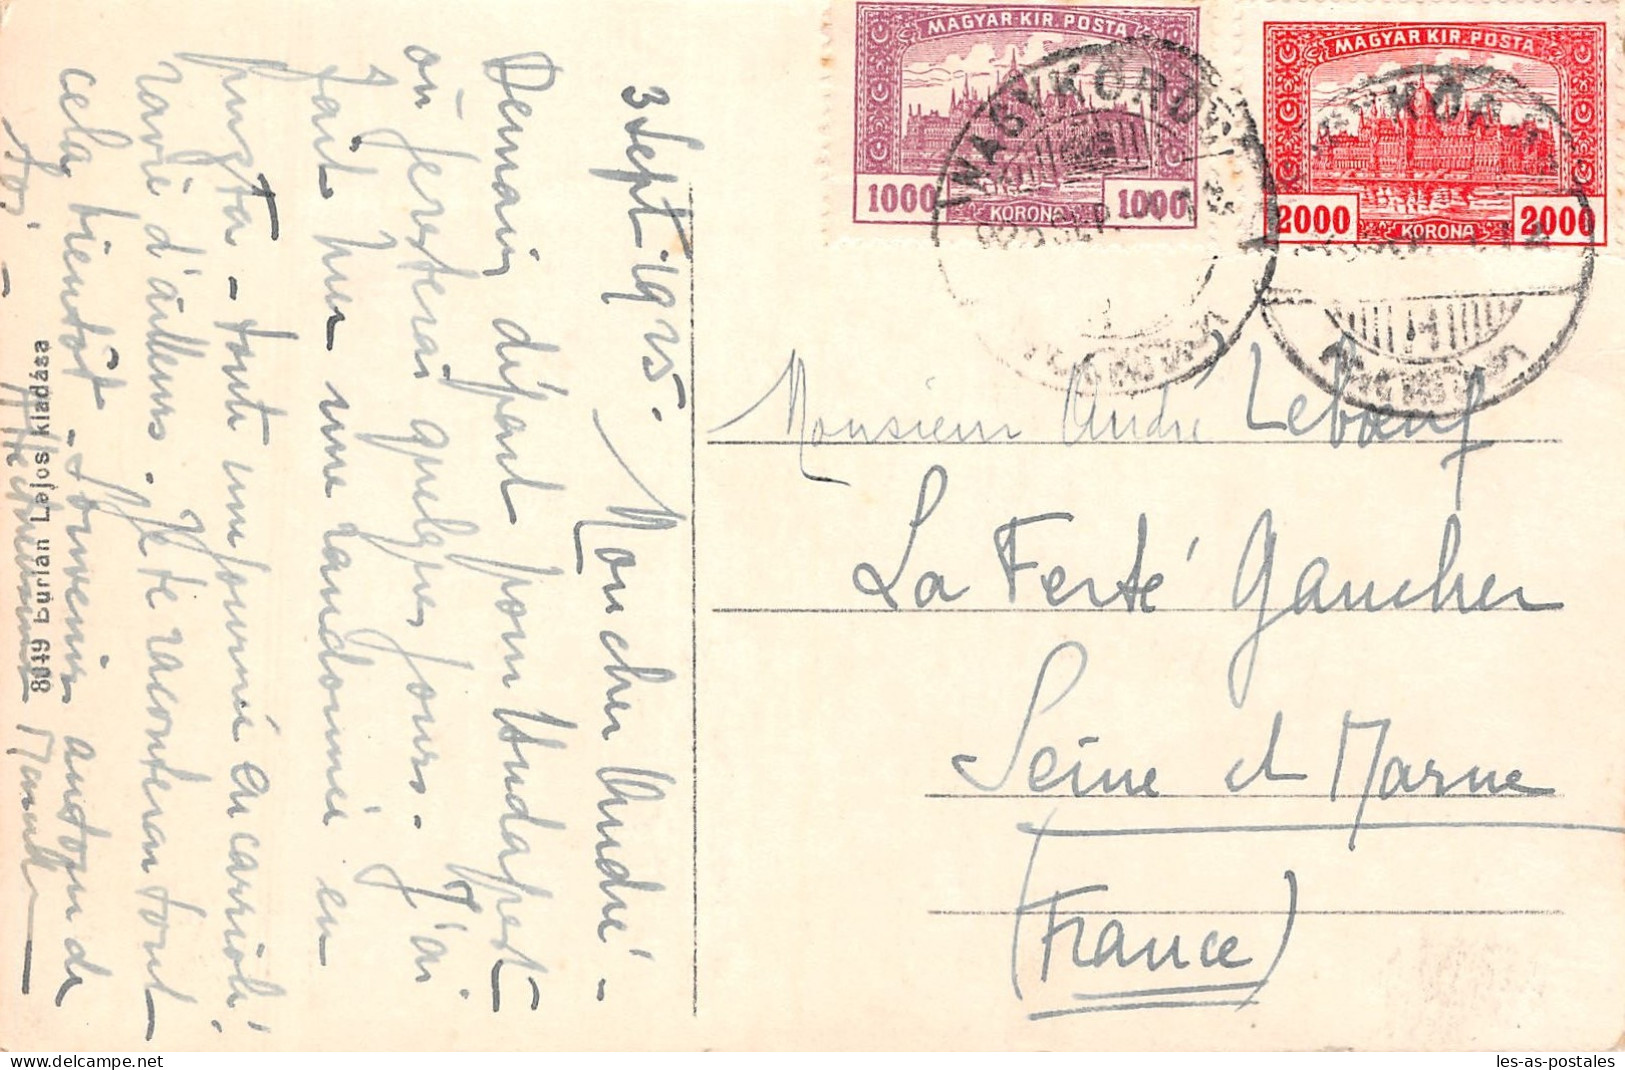 MAGYAR·KIR·POSTA
1000 KORONA 1000
MAGYAR KIR. POSTA
2000 KORONA 2000
NAGYKŐRÖS
3 Sept 1925.
Mon cher André -
Demain départ pour Budapest
où je resterai quelques jours. J'ai
fait hier une randonnée en
puszta - toute une journée en carriole!
ravie d'ailleurs. Je te raconterai tout
cela bientôt - Souvenirs autour de
toi -
8049 Burian Lajos kiadása
Monsieur André Lebœuf
La Ferté Gaucher
Seine et Marne
(France)
les-as-postales